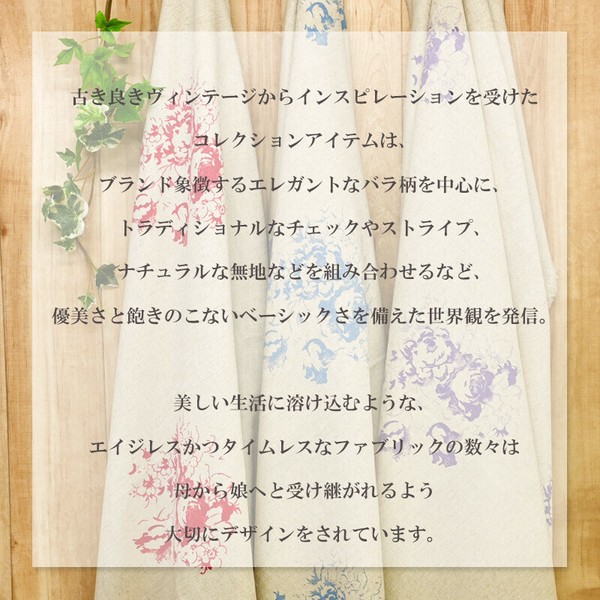 古き良きヴィンテージからインスピレーションを受けた
コレクションアイテムは、
ブランド象徴するエレガントなバラ柄を中心に、
トラディショナルなチェックやストライプ、
ナチュラルな無地などを組み合わせるなど、
優美さと飽きのこないベーシックさを備えた世界観を発信。
美しい生活に溶け込むような、
エイジレスかつタイムレスなファブリックの数々は
母から娘へと受け継がれるよう
大切にデザインをされています。